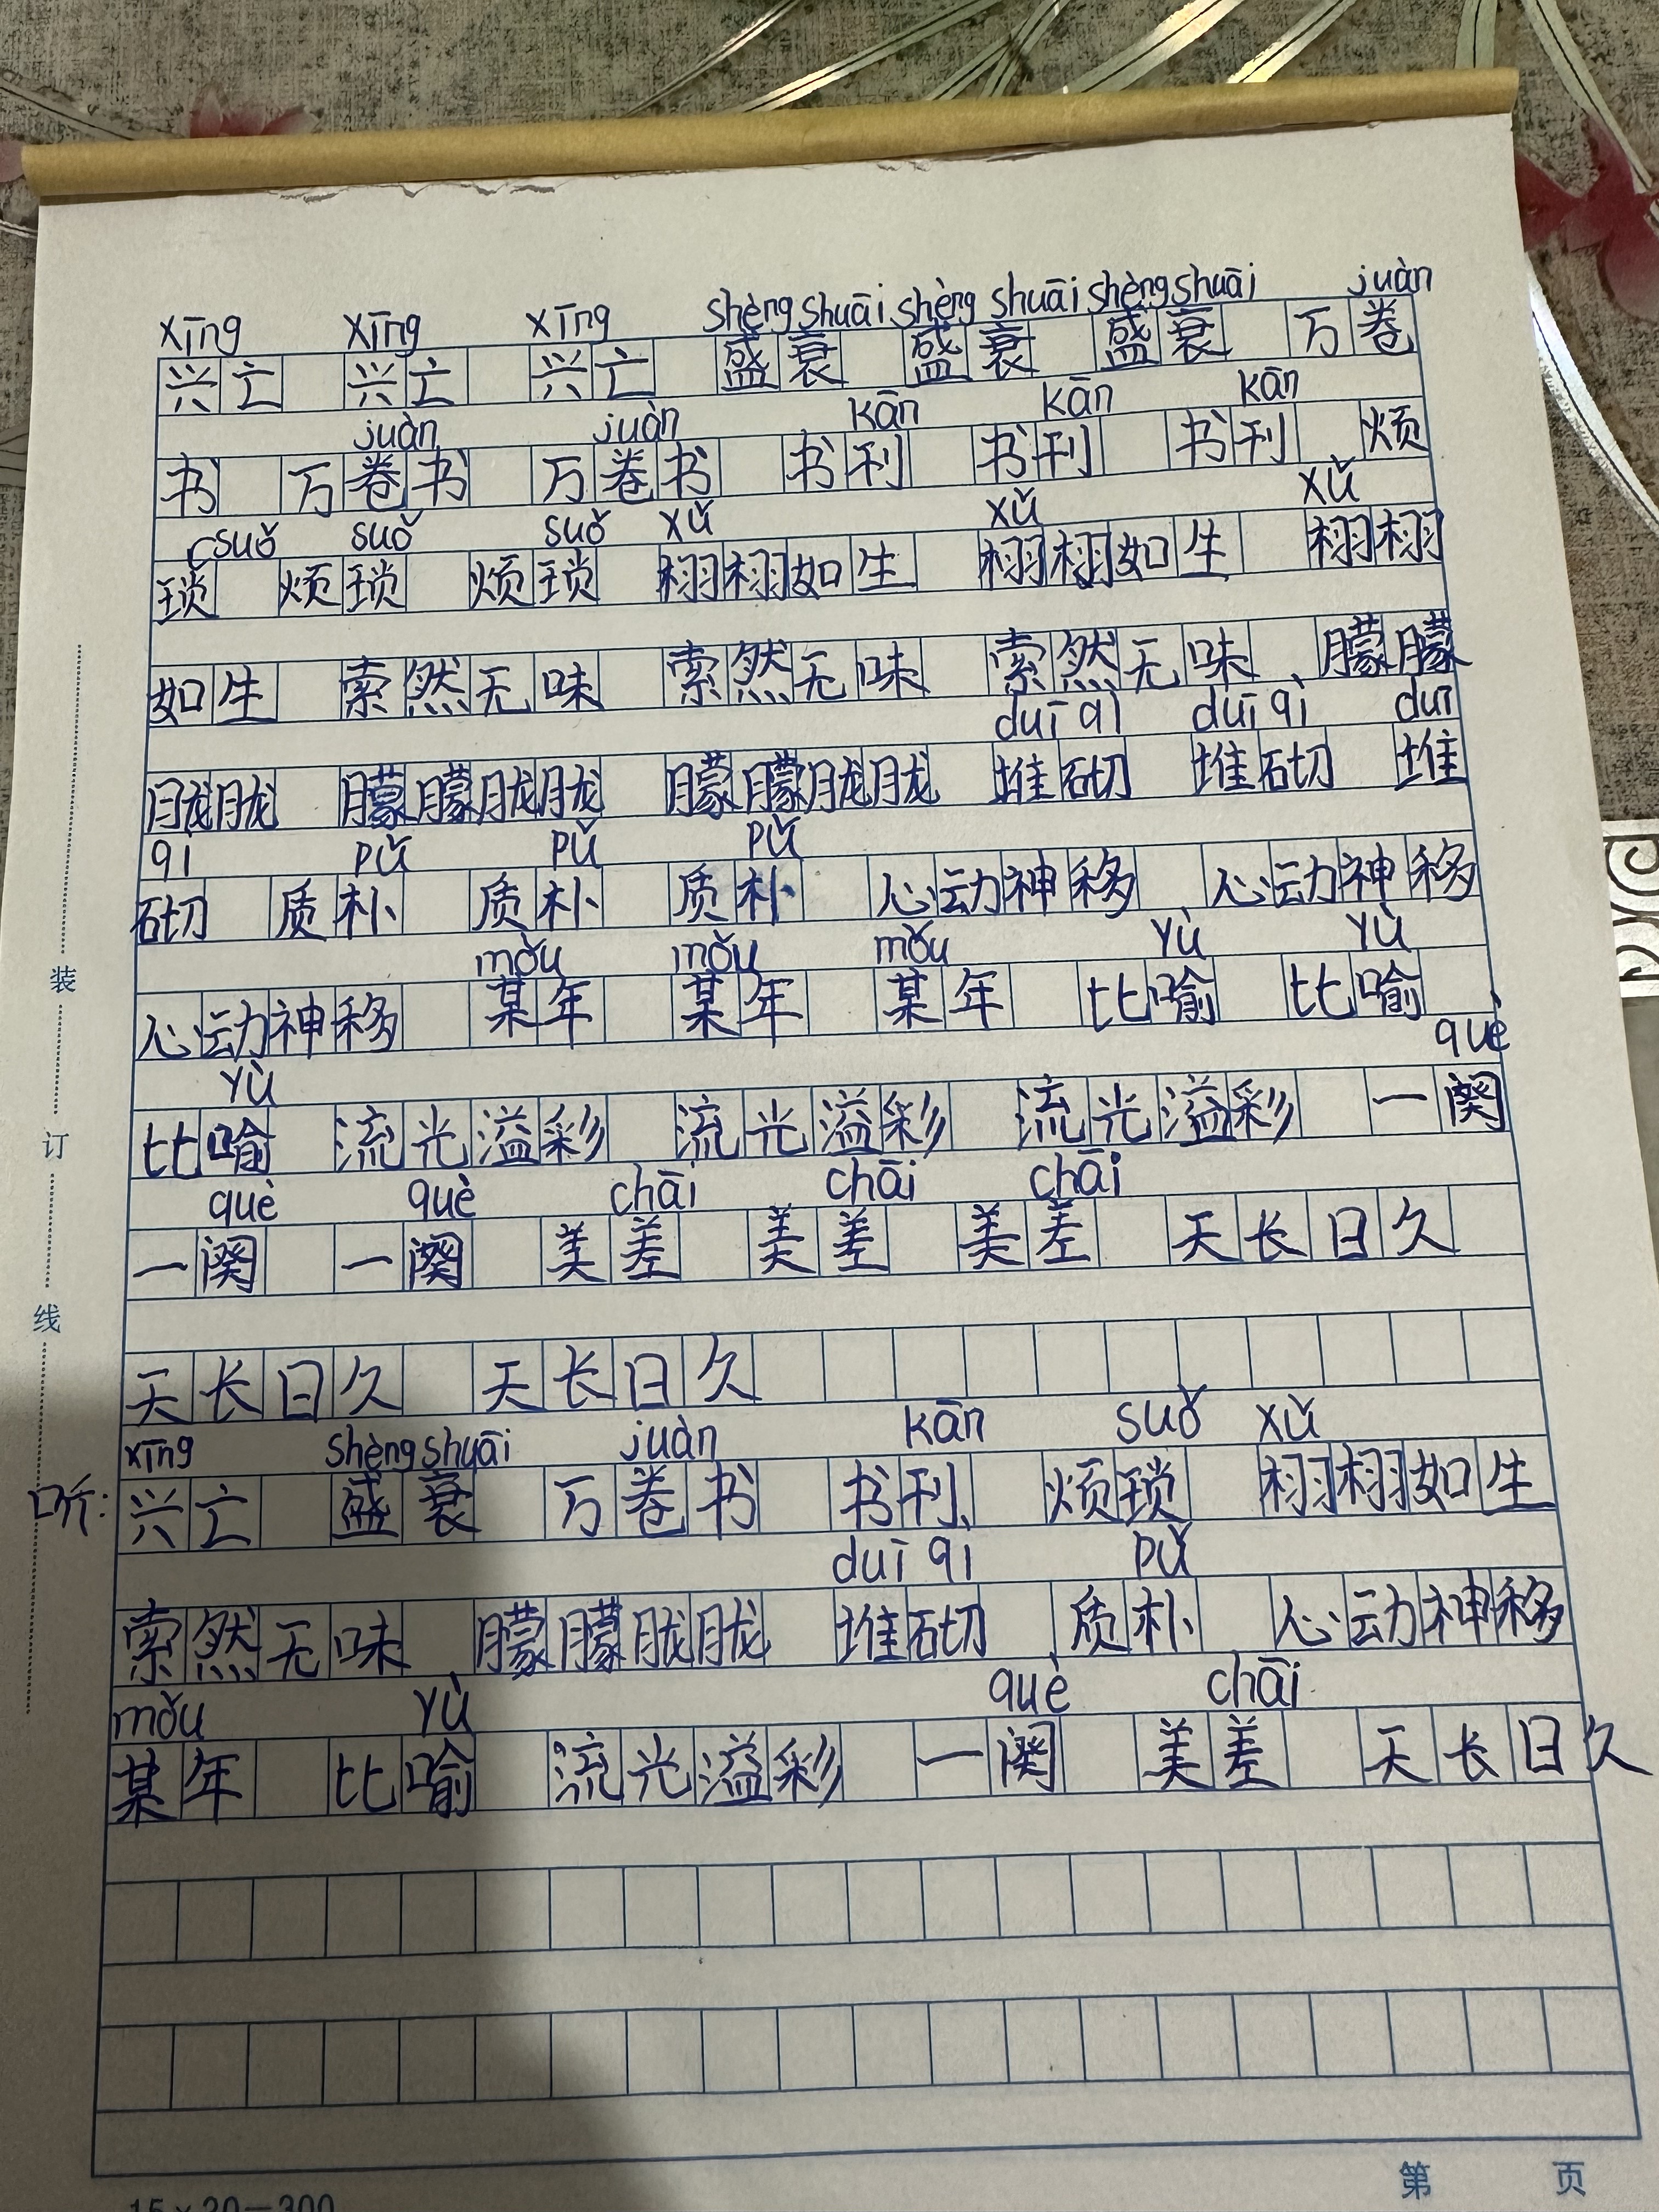 xīng xīng xīng shèng shuāi shèng shuāi shèng shuāi juàn
兴亡 兴亡 兴亡 盛衰 盛衰 盛衰 万卷
juàn juàn kān kān kān
书 万卷书 万卷书 书刊 书刊 书刊 烦
suǒ suǒ suǒ xǔ xǔ xǔ
琐 烦琐 烦琐 栩栩如生 栩栩如生 栩栩
如生 索然无味 索然无味 索然无味 朦朦
duī qì duī qì duī
胧胧 朦朦胧胧 朦朦胧胧 堆砌 堆砌 堆
qì pǔ pǔ pǔ
砌 质朴 质朴 质朴 心动神移 心动神移
mǒu mǒu mǒu yù yù
心动神移 某年 某年 某年 比喻 比喻
yù què
比喻 流光溢彩 流光溢彩 流光溢彩 一阕
què què chāi chāi chāi
一阕 一阕 美差 美差 美差 天长日久
天长日久 天长日久
xīng shèng shuāi juàn kān suǒ xǔ
听: 兴亡 盛衰 万卷书 书刊 烦琐 栩栩如生
duī qì pǔ
索然无味 朦朦胧胧 堆砌 质朴 心动神移
mǒu yù què chāi
某年 比喻 流光溢彩 一阕 美差 天长日久
装
订
线
第 页
15×20=300